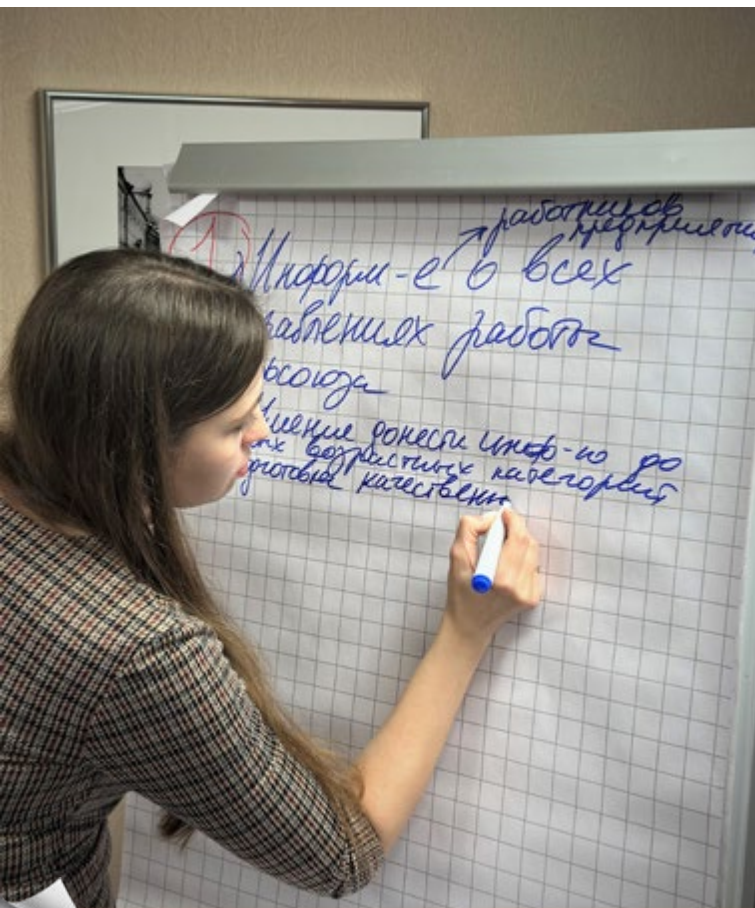 работников
предприятия
1 Информ-е о всех
равлениях работы
союза
ение донести инф-ю до
ех возрастных категорий
дготовка качественн